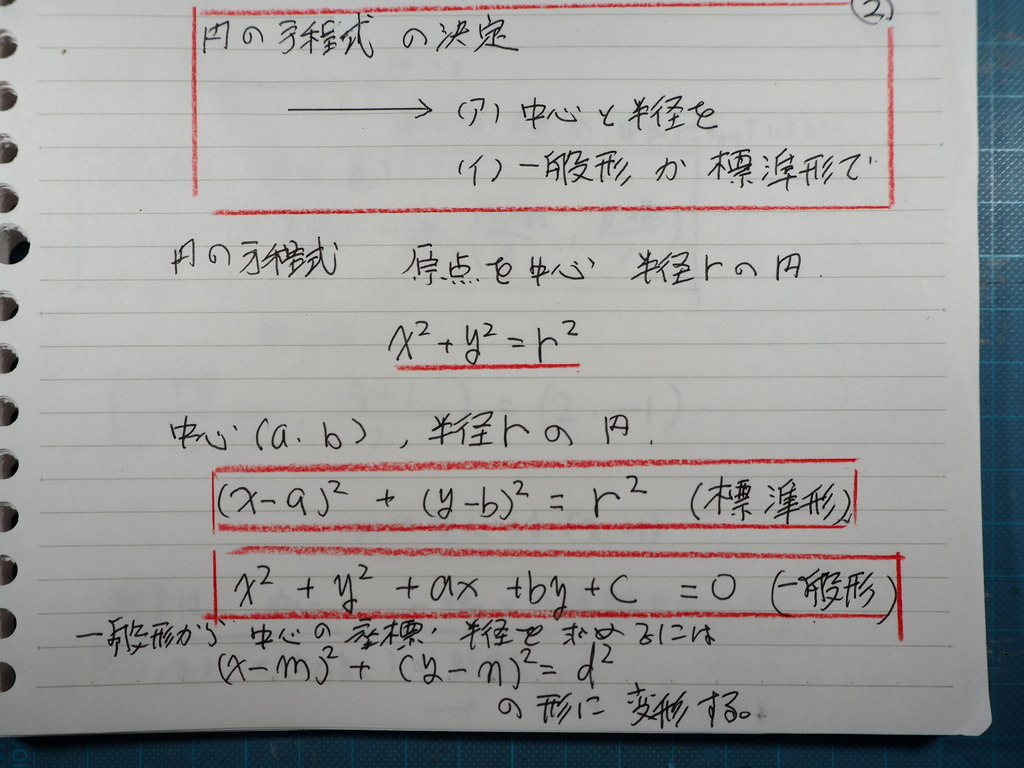 ②
円の方程式 の決定
→ (ア) 中心と半径を
(イ) 一般形 か 標準形で
円の方程式 原点を中心 半径rの円.
x²+y²=r²
中心(a.b), 半径rの円.
(x-a)² + (y-b)² = r² (標準形)
x² + y² + ax + by + c = 0 (一般形)
一般形から 中心の座標, 半径を求めるには
(x-m)² + (y-n)² = d²
の形に変形する。